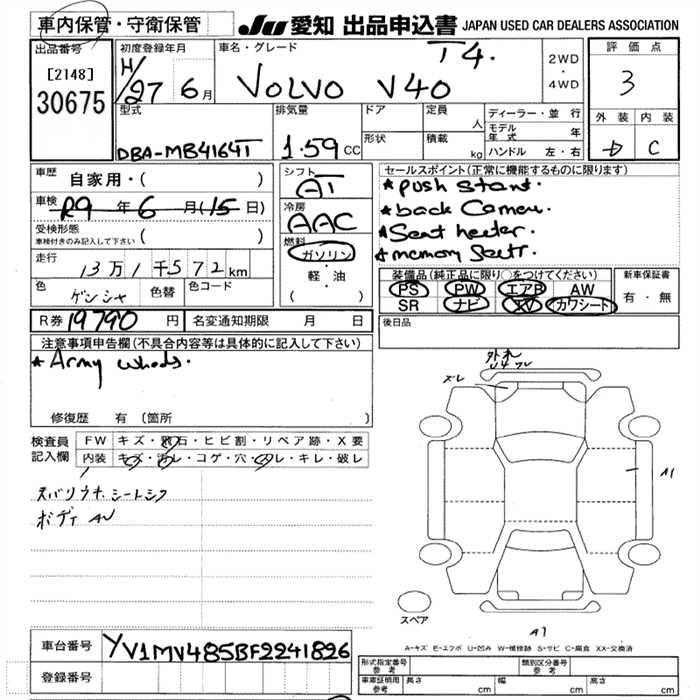 車内保管・守衛保管
JU 愛知 出品申込書 JAPAN USED CAR DEALERS ASSOCIATION
出品番号
[2148]
30675
初度登録年月
H/27 6月
車名・グレード
VOLVO V40 T4.
2WD
・
4WD
評価点
3
外装 内装
C
型式
DBA-MB4164T
排気量
1.59 CC
ドア
形状
定員
人
積載
kg
ディーラー・並行
モデル年式 年
ハンドル 左・右
車歴
自家用・( )
車検
R9 年 6 月(15 日)
受検形態
車検付きのみ記入して下さい ( )
走行
13万1千572km
色
ゲンシャ
色替
色コード
シフト
AT
冷房
AAC
燃料
ガソリン
・
軽・油
( )
セールスポイント(正常に機能するものに限ります)
★push start.
★back Camera.
★Seat heater.
★memory Seat.
装備品(純正品に限り○をつけてください)
PS PW エアB AW
SR ナビ TV カワシート
新車保証書
有・無
R券 19790 円
名変通知期限 月 日
後日品
注意事項申告欄(不具合内容等は具体的に記入して下さい)
★Army wheels.
修復歴 有 (箇所
検査員
記入欄
FW キズ・飛石・ヒビ割・リペア跡・X要
内装 キズ・汚レ・コゲ・穴・スレ・キレ・破レ
ズレ
A1
スペア
A1
A-キズ E-エクボ U-凹み W-補修跡 S-サビ C-腐食 XX-交換済
車台番号
YV1MV485BF2241826
登録番号
形式指定番号
参考
類別区分番号
参考
車庫証明用
参考
長さ cm
幅 cm
高さ cm